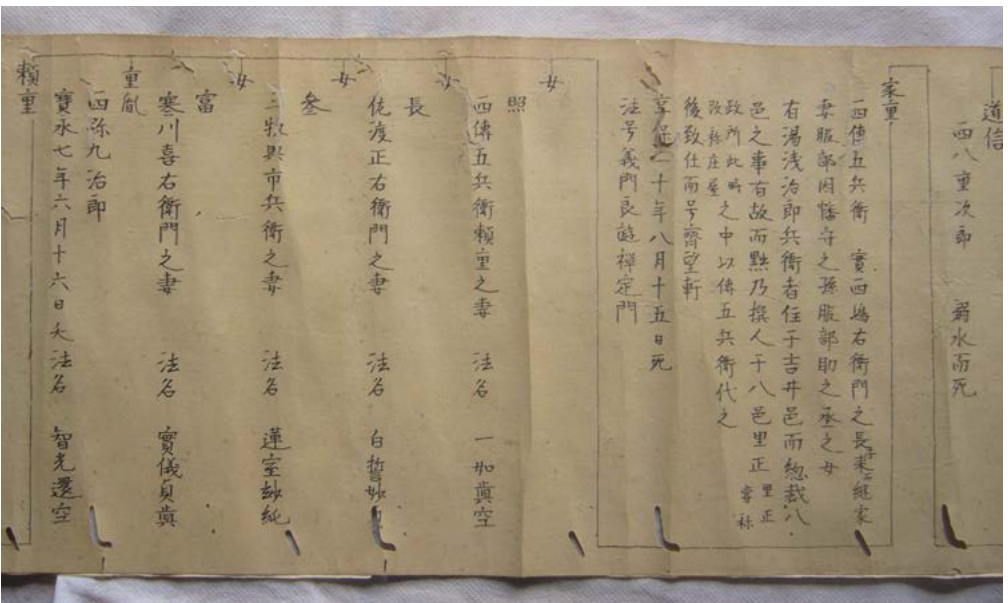 道信
西八重次郎 溺水而死
家重
西傳五兵衛 實西嶋右衛門之長 継家
妻服部因幡守之孫服部助之丞之女
右湯浅治郎兵衛者住于吉井邑而総裁八
邑之事有故而黜乃撰人于八邑里正 里正
政所此時
改称庄屋 之中以傳五兵衛代之
後致仕而号齋望軒
享保二十年八月十五日死
法号義門良遊禅定門
女
照
西傳五兵衛頼重之妻 法名 一如眞空
女
長
佐渡正右衛門之妻 法名 白誓妙
女
参
三牧與市兵衛之妻 法名 蓮室妙純
女
富
寒川喜右衛門之妻 法名 實儀貞眞
重胤
西弥九治郎
寶永七年六月十六日夭 法名 智光還空
頼重